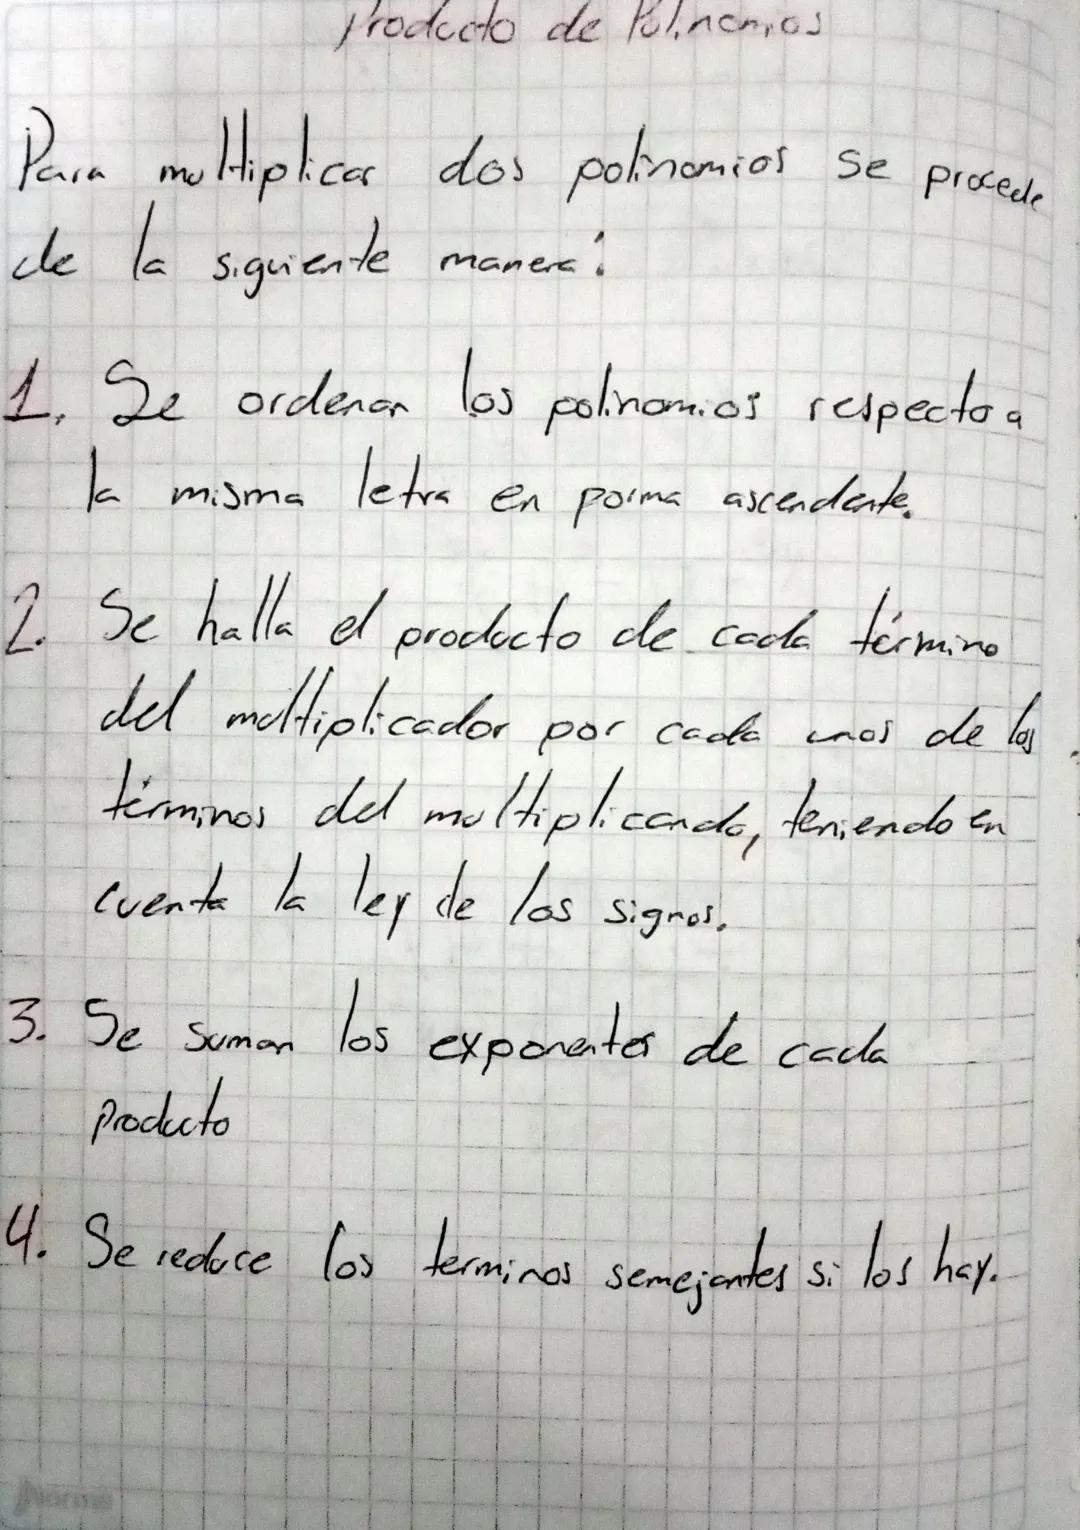 Producto de Polinomios
Para multiplicar dos polinomios se procede
de la siguiente manera:
1. Se ordenan los polinomios respecto a
la misma letra en porma ascendente.
2. Se halla el producto de cada término
del multiplicador por cada unos de los
términos del multiplicando, teniendo en
cuenta la ley de los signos.
3. Se suman los exponentes de cada
producto
4. Se reduce los terminos semejantes si los hay.
Norma